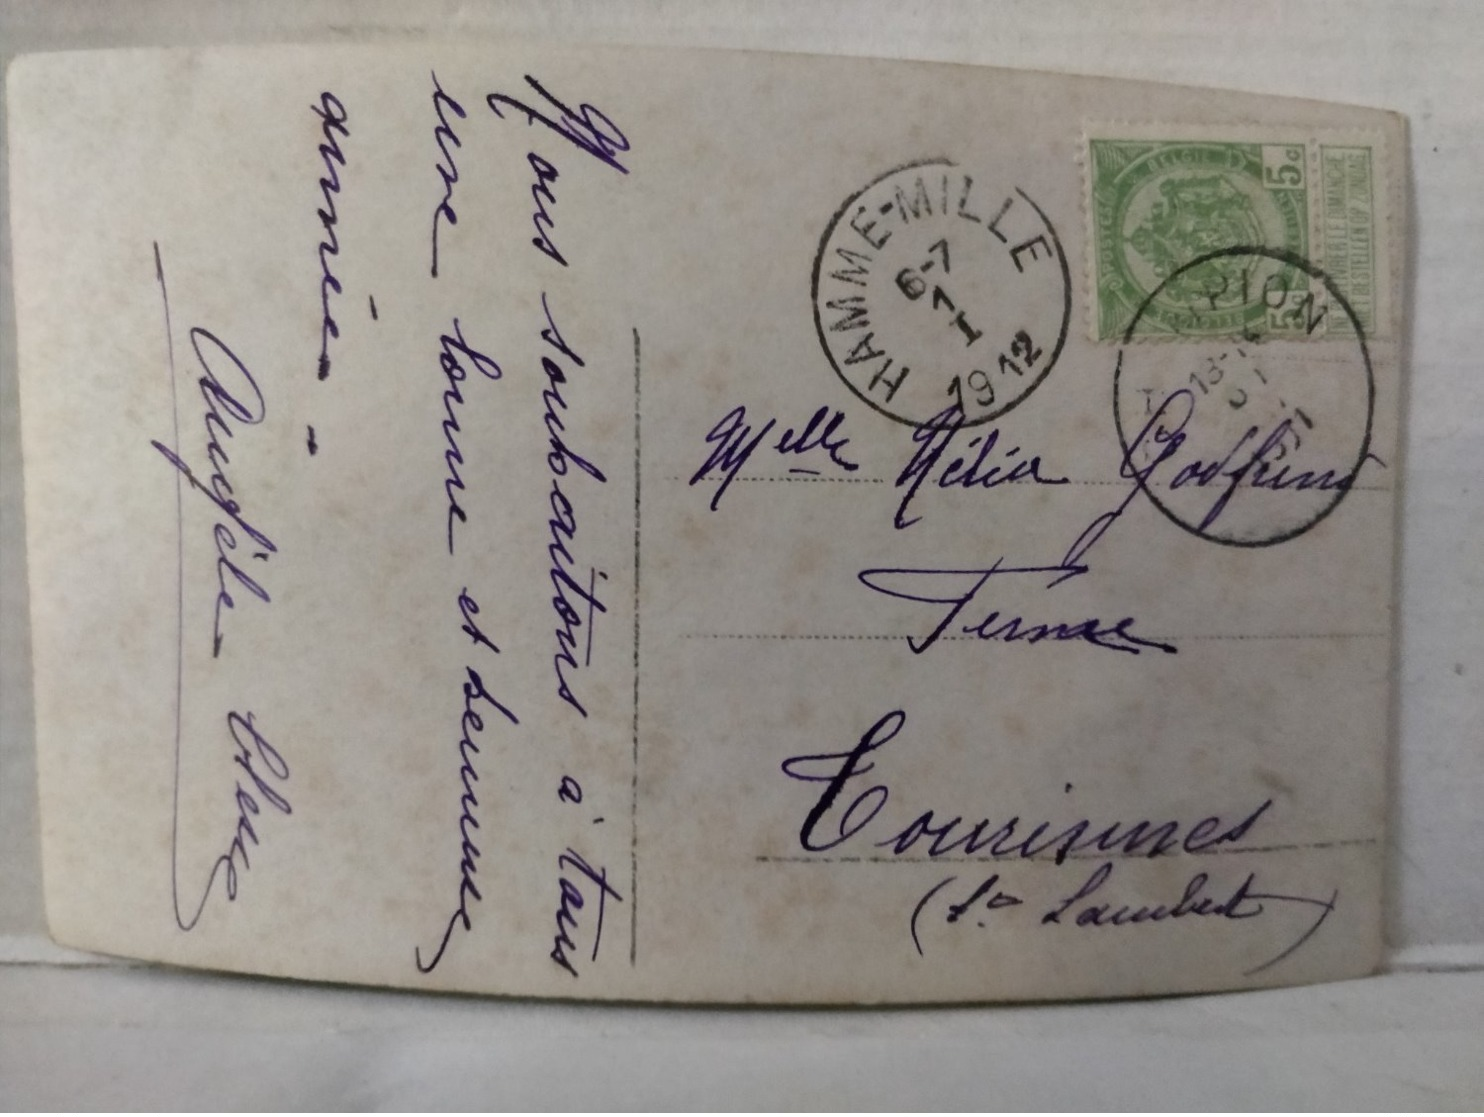 Nous souhaitons à tous
une bonne et heureuse
année.
Angèle
HAMME-MILLE
6-7
1
I
1912
BELGIE
5c
5c
NE PAS LIVRER LE DIMANCHE
NIET BESTELLEN OP ZONDAG
PION
13-
Melle Nélia
Ferme
Tourinnes
(St Lambert)